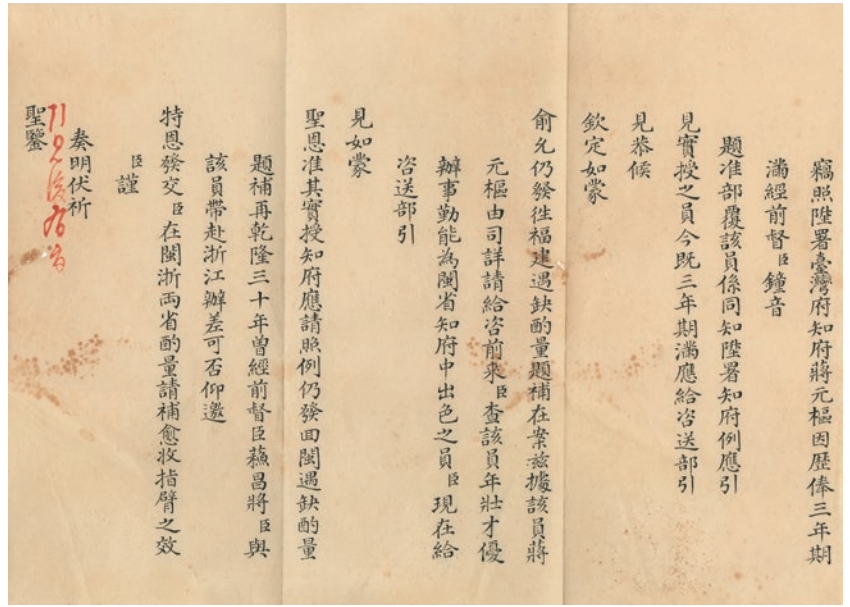 竊照陞署臺灣府知府蔣元樞因歷俸三年期
滿經前督臣鐘音
題准部覆該員係同知陞署知府例應引
見實授之員今既三年期滿應給咨送部引
見恭候
欽定如蒙
俞允仍發往福建遇缺酌量題補在案茲據該員蔣
元樞由司詳請給咨前來臣查該員年壯才優
辦事勤能為閩省知府中出色之員臣現在給
咨送部引
見如蒙
聖恩准其實授知府應請照例仍發回閩遇缺酌量
題補再乾隆三十年曾經前督臣蘓昌將臣與
該員帶赴浙江辦差可否仰邀
特恩發交臣在閩浙両省酌量請補愈收指臂之效
臣謹
奏明伏祈
聖鑒